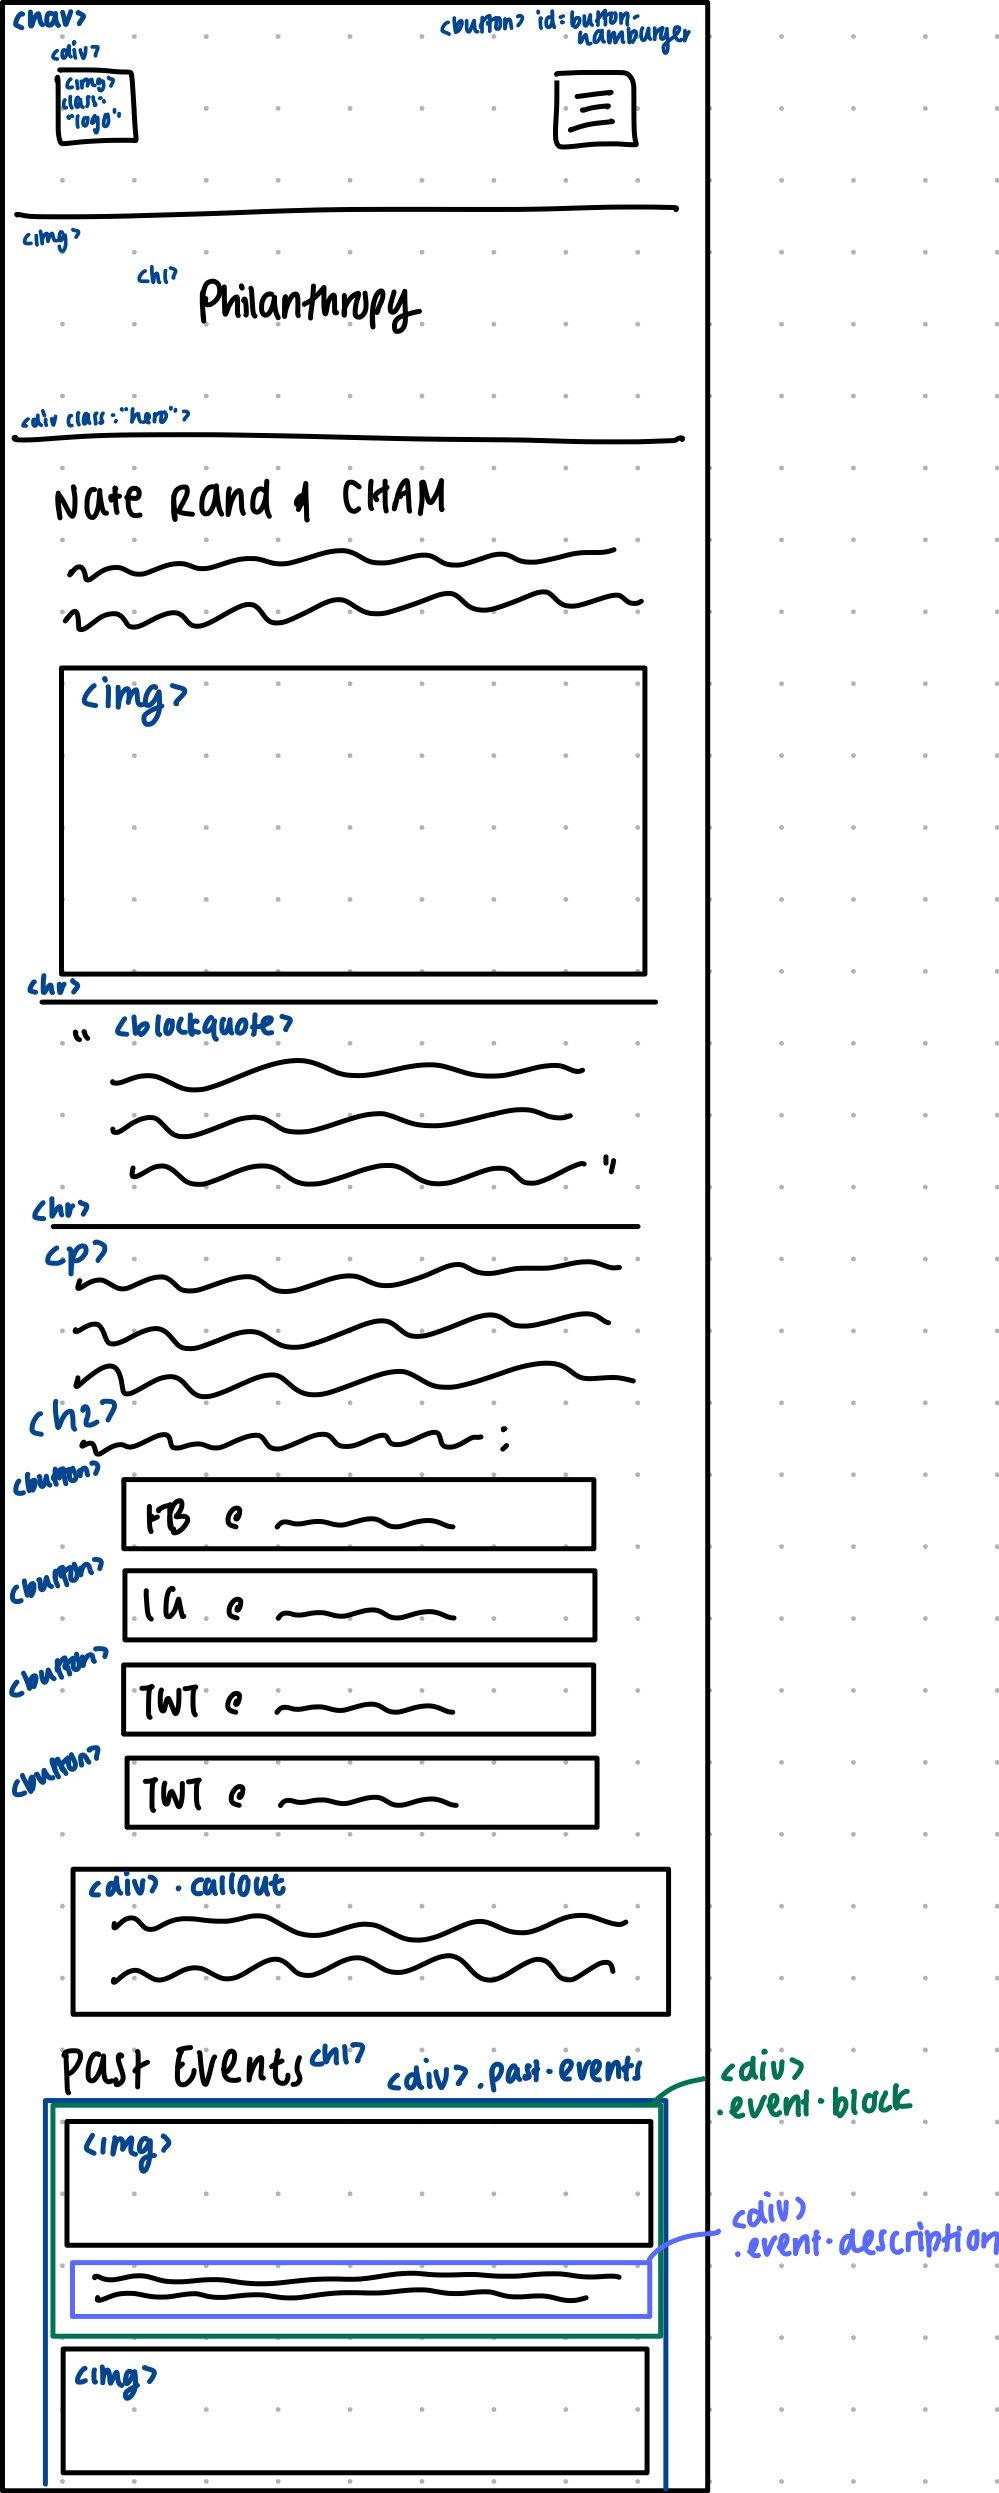 <nav>
<button> id: button-
hamburger
<div>
<img>
class:
"logo"
<img>
<h1>
Philanthropy
<div class: "hero">
Nate Rand & CHAM
<img>
<hr>
" <blockquote>
"
<hr>
<p>
<h2>
:
<button>
FB @
<button>
IG @
<button>
TWT @
<button>
TWT @
<div> . callout
Past Events <h1>
<div> . past-events
<div>
. event-block
<img>
<div>
. event-description
<img>